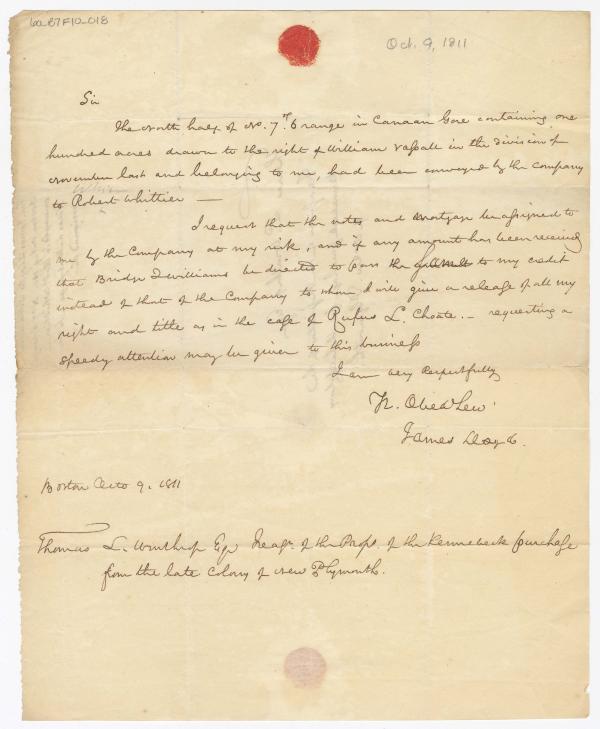 60_B7F10_018
Oct. 9, 1811
Sir
The North half of No. 7th 6 range in Canaan Gore containing one
hundred acres drawn to the right of William Vassall in the division of
November last and belonging to me, had been conveyed by the Company
to Robert Whittier —
I request that the notes and Mortgage be assigned to
me by the Company at my risk, and if any amount has been received
that Bridge & Williams be directed to pass the to my credit
instead of that of the Company to whom I will give a release of all my
right and title as in the case of Rufus L. Choate. — requesting a
speedy attention may be given to this business
I am very respectfully
Yr. Obed. Sev.
James Lloyd
Boston Octo 9. 1811
Thomas L. Winthrop Esqr Treasr. of the Props. of the Kennebeck purchase
from the late Colony of New Plymouth.